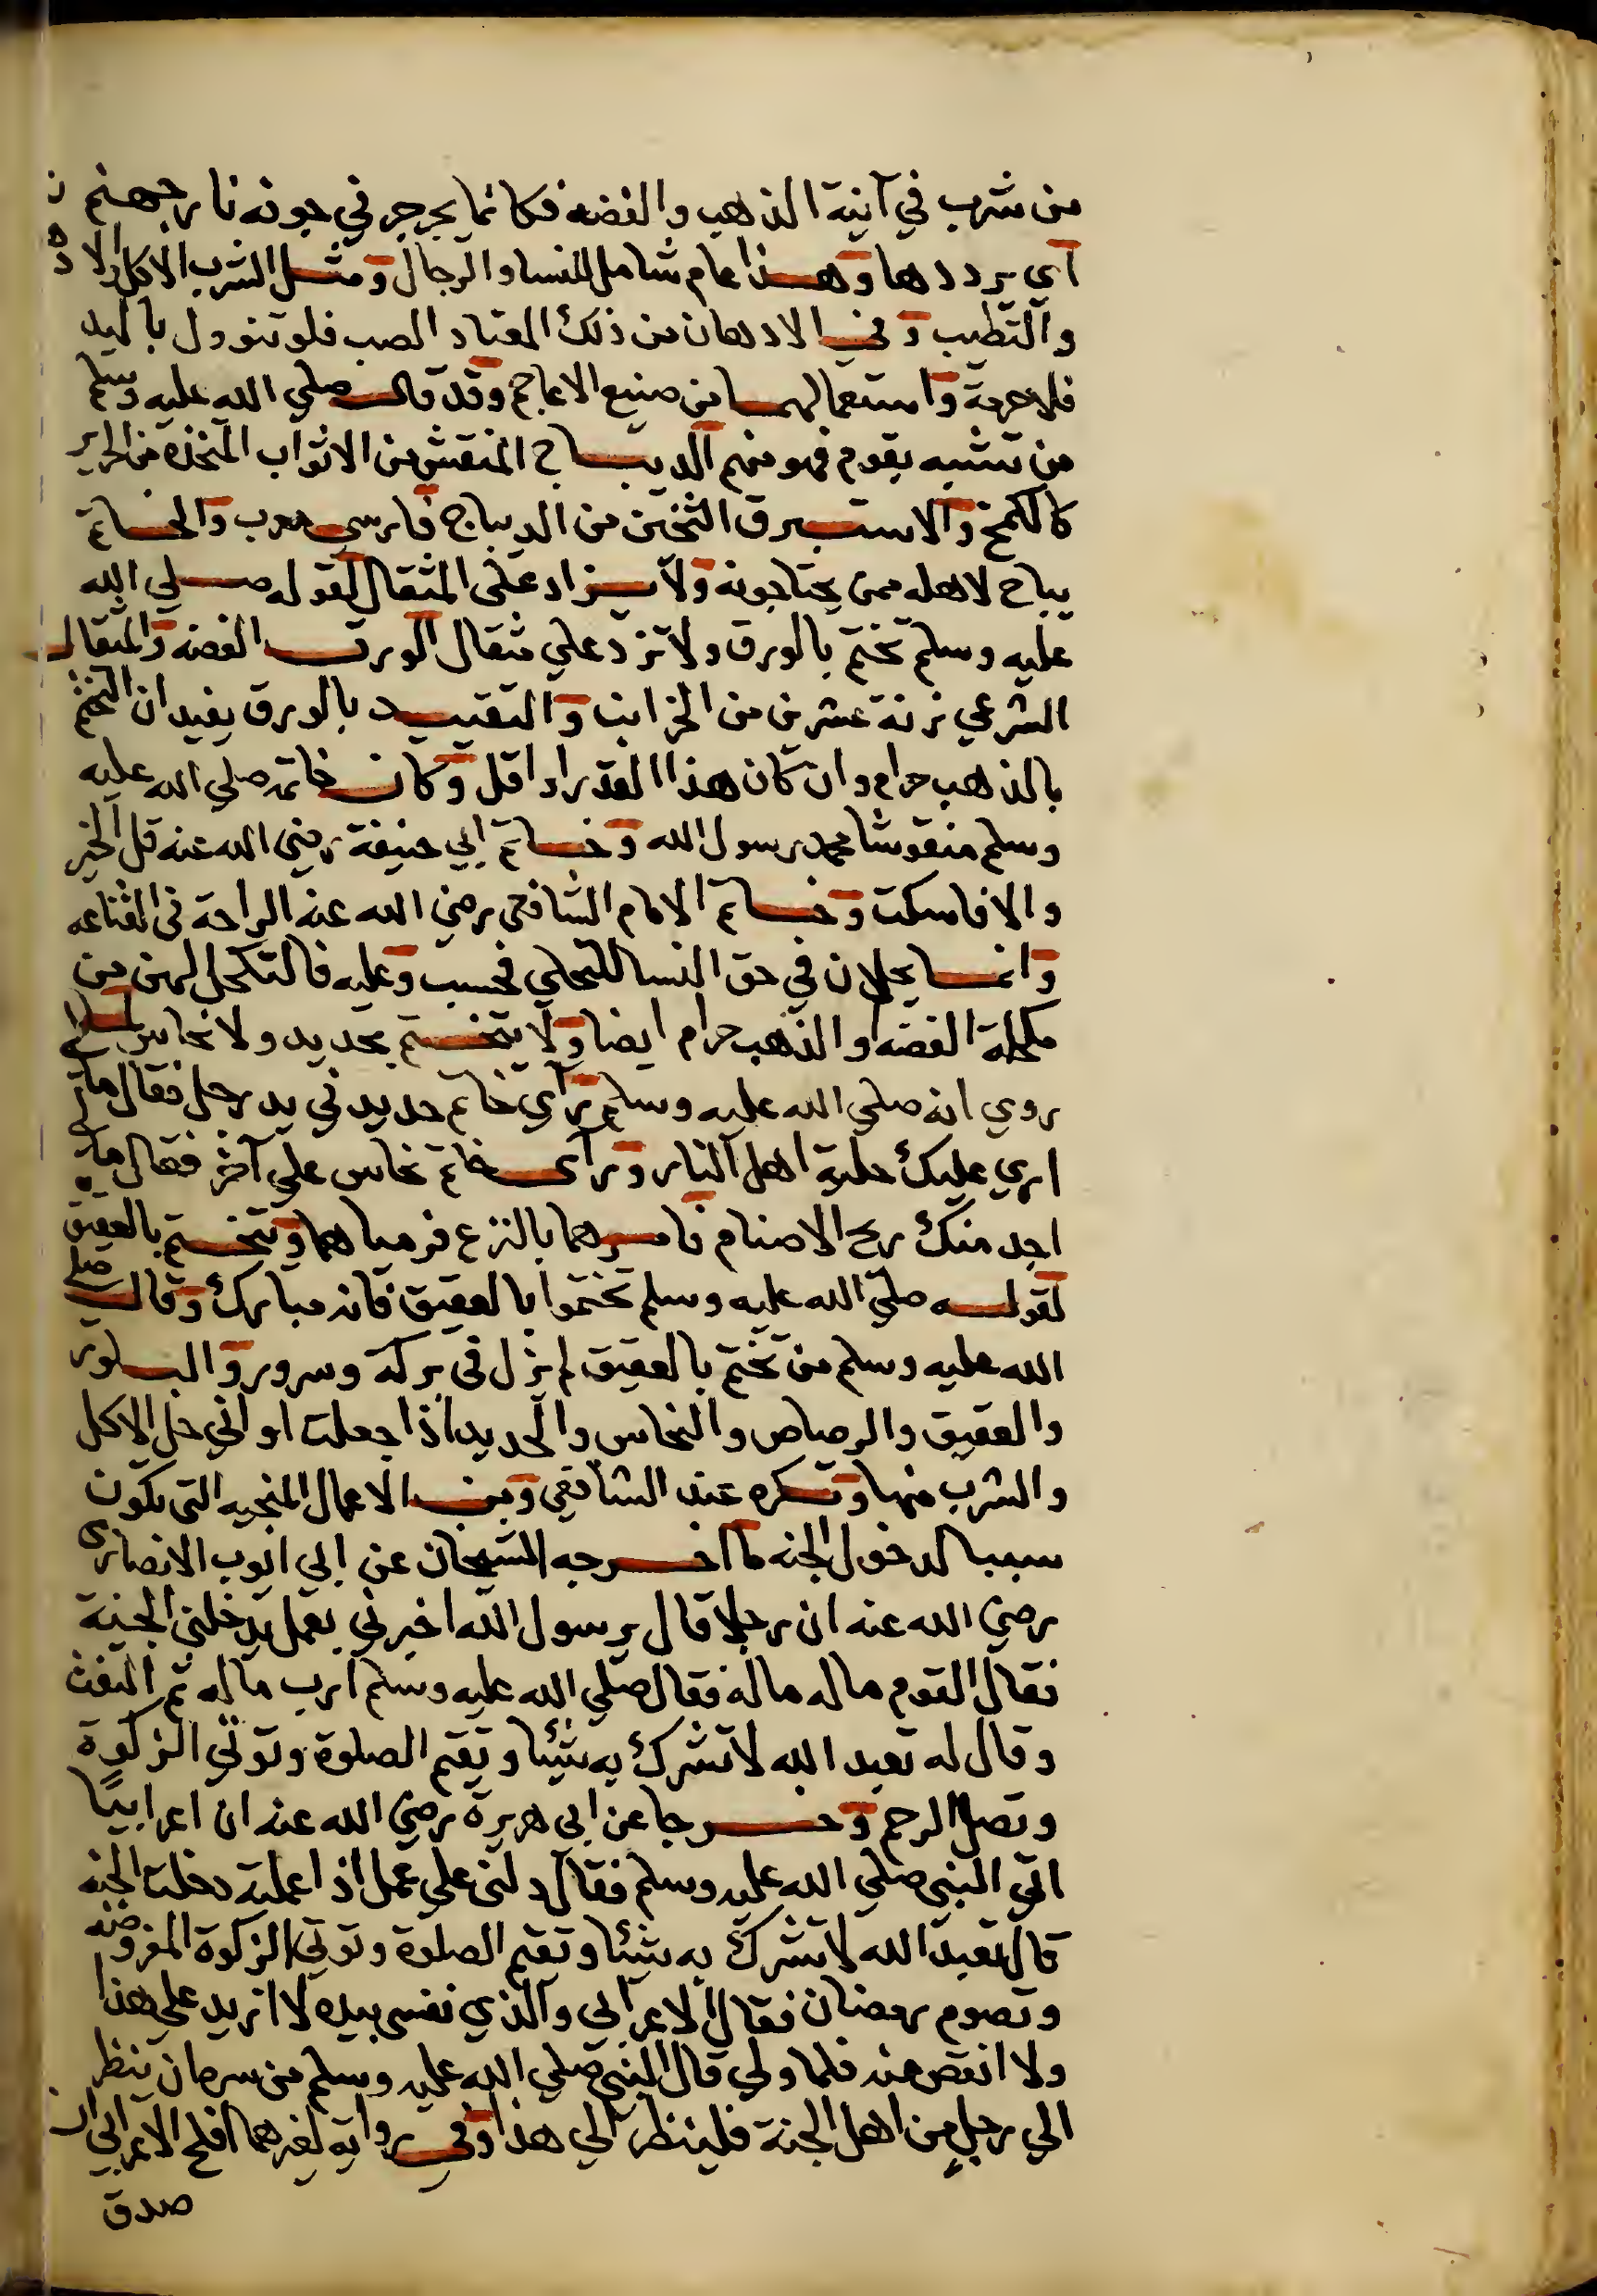 من شرب في آنية الذهب والفضه فكانما يجرجر في جوفه نار جهنم
اي يرددها وهذا عام شامل للنسا والرجال ومثل الشرب الاكل والاده
والتطيب وفي الادهان من ذلك المعتاد الصب فلو تنوول باليد
فلا حرمة واستعمالهما من صنيع الاعاجم وقد قال صلي الله عليه وسلم
من تشبه بقوم فهو منهم الديباج المنقش من الاثواب المتخذه من الحرير
كالكمخ والاستبرق الثخين من الديباج فارسي معرب والخاتم
يباح لاهله ممن يحتاجونه ولا يزاد على المثقال لقوله صلي الله
عليه وسلم تختم بالورق ولا تزد علي مثقال الورق الفضه والمثقال
الشرعي زنة عشرين من الخرانب والتقييد بالورق يفيد ان التختم
بالذهب حرام وان كان هذا القدر او اقل وكان خاتمه صلي الله عليه
وسلم منقوشا محمد رسول الله وخاتم ابي حنيفة رضي الله عنه قل الخير
والا فاسكت وخاتم الامام الشافعى رضي الله عنه الراحة في القناعه
وانما يحلان في حق النسا للتحلي فحسب وعليه فالتكحل لهن من
مكحلة الفضه او الذهب حرام ايضا ولا يتختم بحديد ولا نحاس لما
روي انه صلي الله عليه وسلم رآي خاتم حديد في يد رجل فقال مالي
اري عليك حلية اهل النار ورآى خاتم نحاس علي آخر فقال مالي
اجد منك ريح الاصنام فامرهما بالنزع فرمياهما ويتختم بالعقيق
لقوله صلي الله عليه وسلم تختموا بالعقيق فانه مبارك وقال صلي
الله عليه وسلم من تختم بالعقيق لم يزل في بركة وسرور والبلور
والعقيق والرصاص والنحاس والحديد اذا جعلت اواني حل الاكل
والشرب منها وتكره عند الشافعي ومن الاعمال المنجيه التي تكون
سببا لدخول الجنه ما اخرجه الشيخان عن ابي ايوب الانصارى
رضي الله عنه ان رجلا قال يرسول الله اخبرني بعمل يدخلني الجنة
فقال القوم ماله ماله فقال صلي الله عليه وسلم ارب ماله ثم التفت
وقال له تعبد الله لا تشرك به شيئا وتقيم الصلوة وتوتي الزكوة
وتصل الرحم وخرجا عن ابي هريرة رضي الله عنه ان اعرابيًا
اتي النبي صلي الله عليه وسلم فقال دلني علي عمل اذا عملته دخلت الجنه
قال تعبد الله لا تشرك به شيئا وتقيم الصلوة وتوتي الزكوة المفروضه
وتصوم رمضان فقال الاعرابي والذي نفسي بيده لا ازيد علي هذا
ولا انقص منه فلما ولي قال النبي صلي الله عليه وسلم من سره ان ينظر
الي رجل من اهل الجنة فلينظر الي هذا وفي رواية لغيرهما افلح الاعرابي ان
صدق